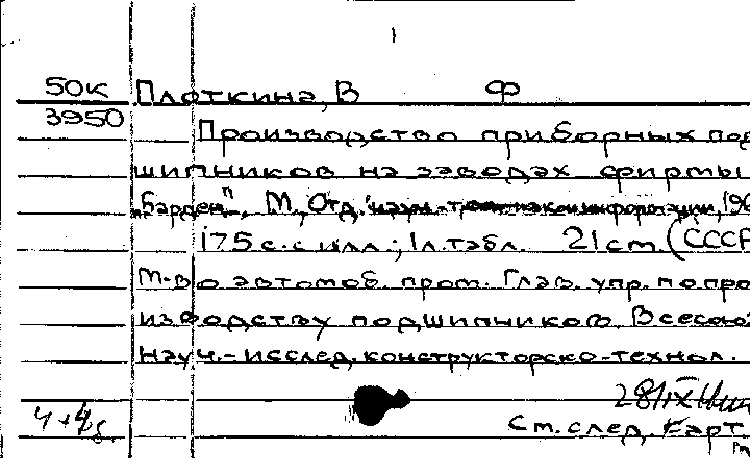 50к Плоткина, В Ф
3950
Производство приборных под
шипников на заводах фирмы
"Барден", М., Отд. 196
175 с. с илл.; 1 л. табл. 21 см. (СССР
М-во автомоб. пром. Глав. упр. по про
изводству подшипников. Всесоюз
науч.-исслед. конструкторско-технол.
281
4+4
См. след. карт.